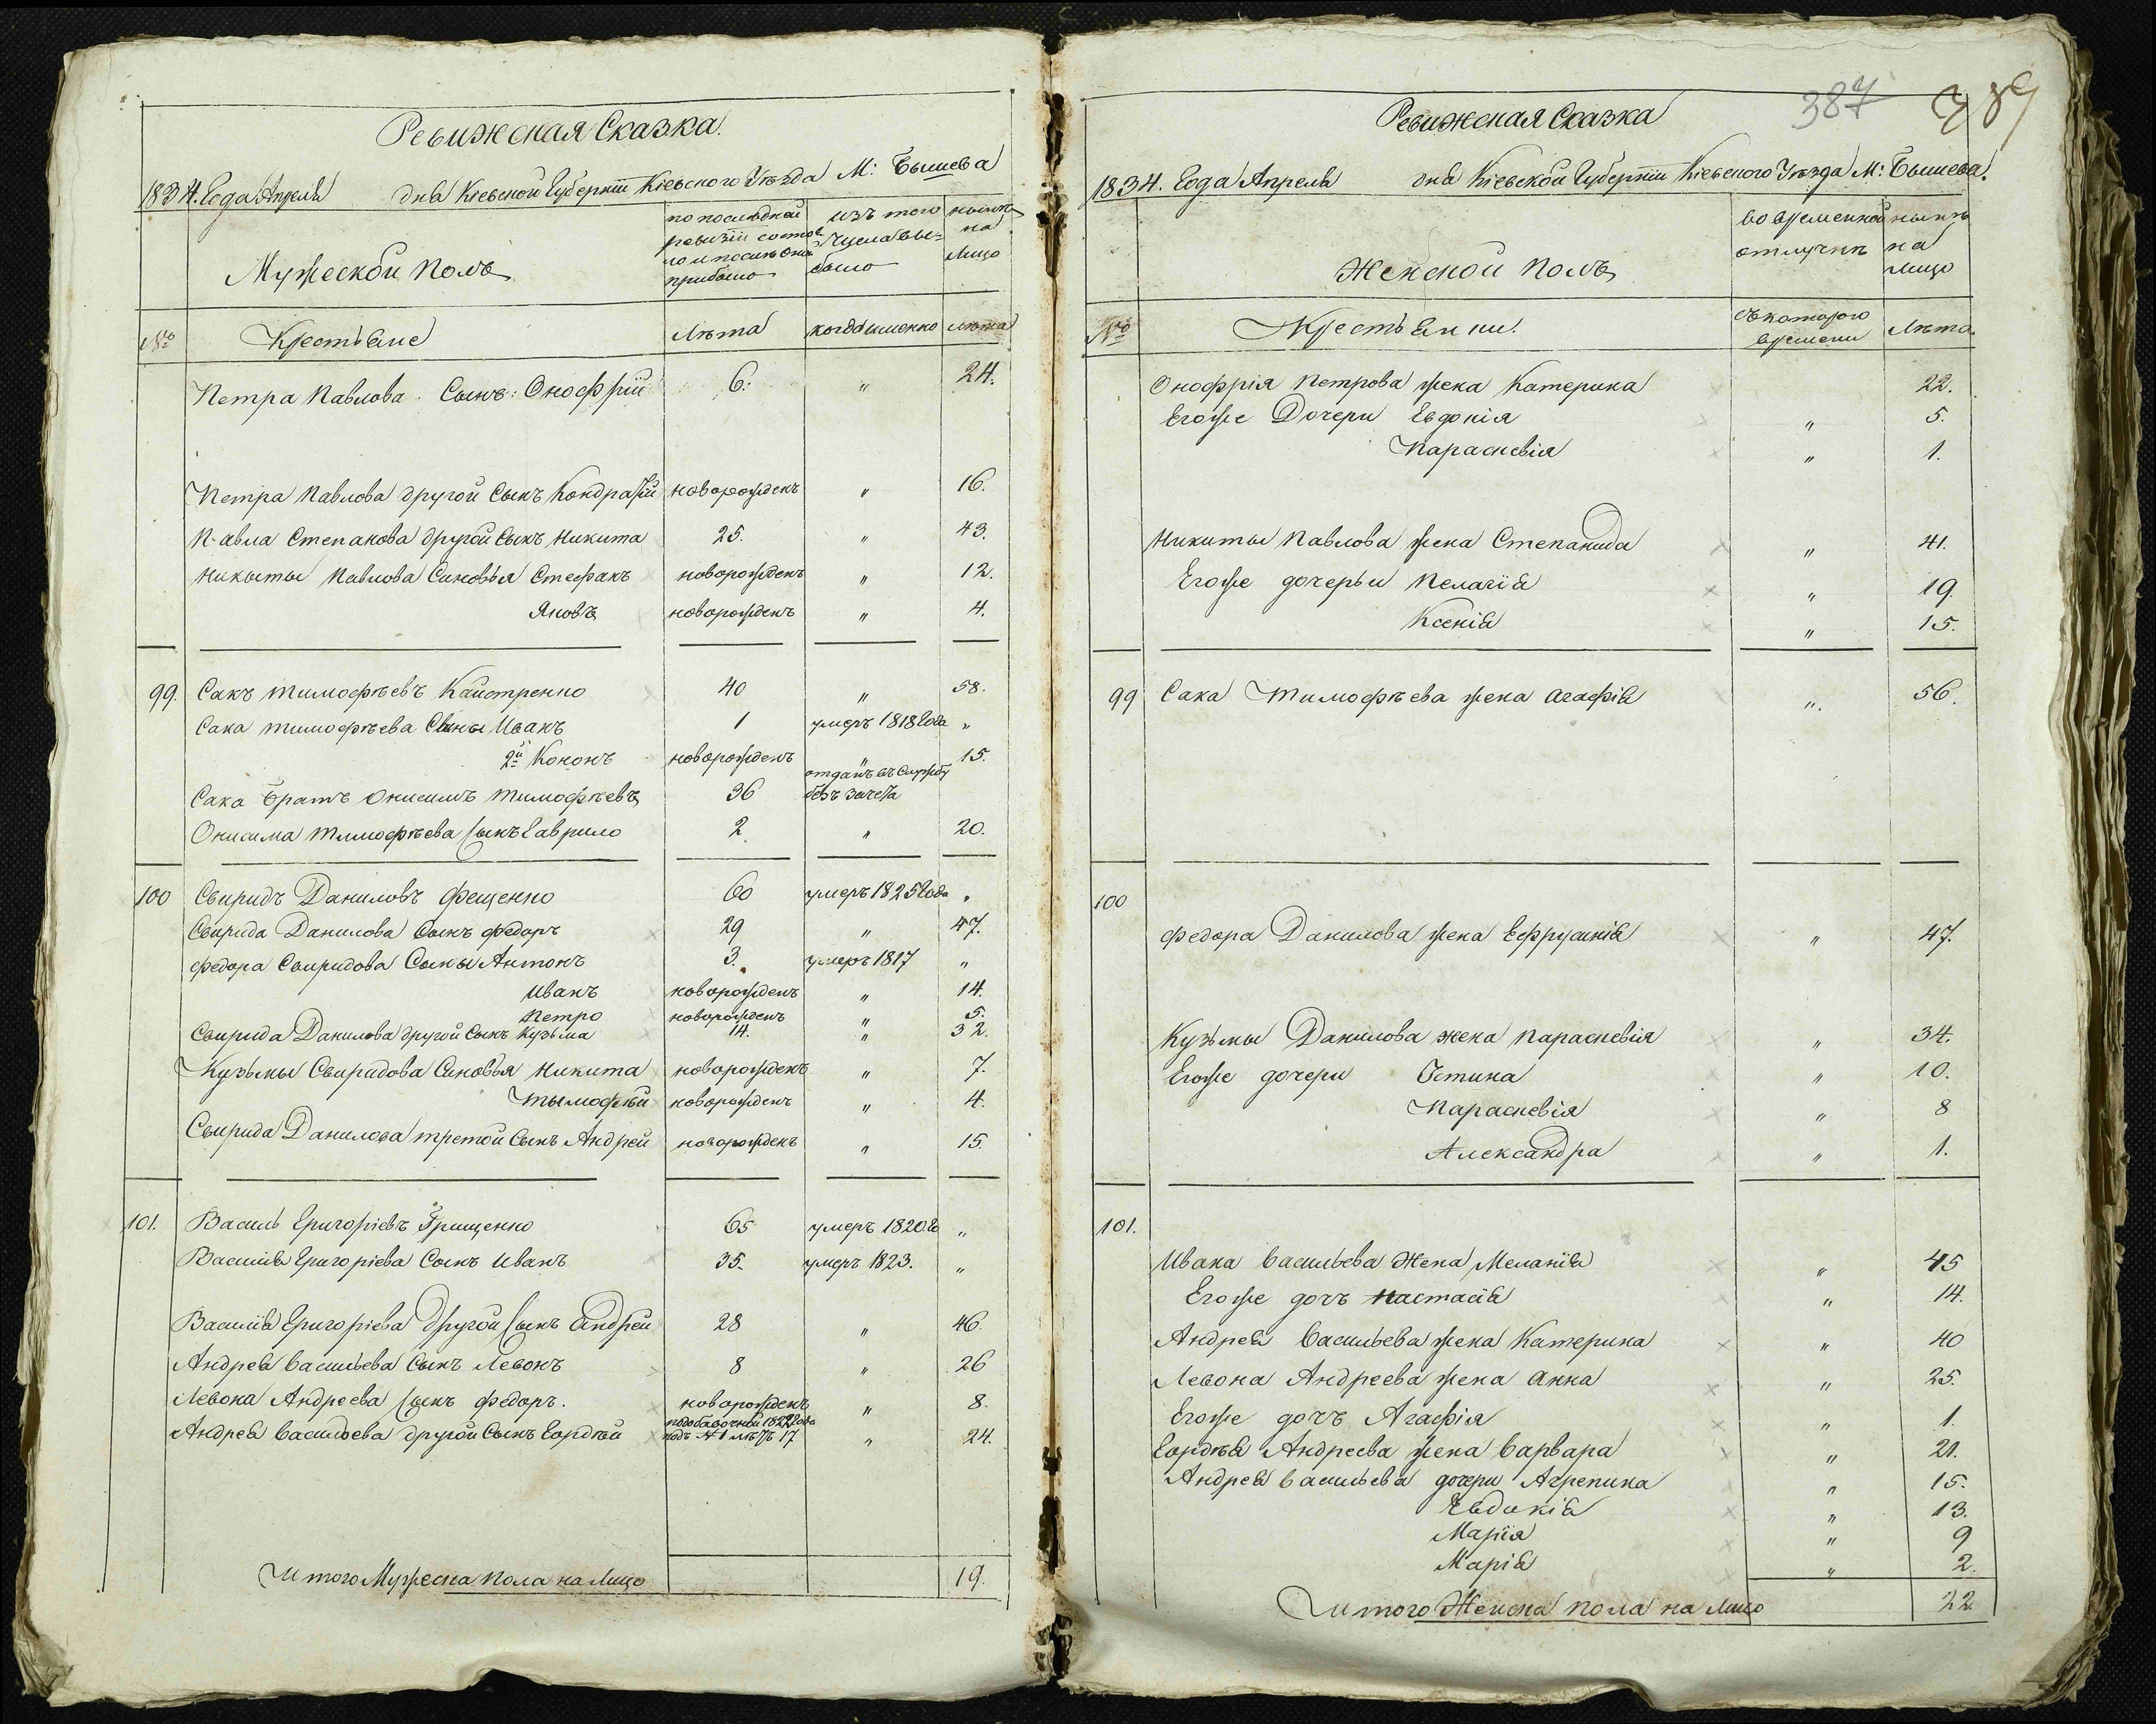 Ревижская Сказка.
1834. Года Апреля дня Кіевской Губерніи Кіевского Уѣзда М: Бышева
Мужеской полъ
по последной ревизіи состояло и после оной прибыло
изъ того числа выбыло
нынѣ на лицо
№ Крестьяне Лѣта когда именно Лѣта
Петра Павлова Сынъ: Онофрій 6: " 24.
Петра Павлова другой Сынъ Кондратій новорожденъ " 16.
Павла Степанова другой Сынъ Никита 25. " 43.
Никиты Павлова Сыновья Стефанъ новорожденъ " 12.
Яковъ новорожденъ " 4.
99. Сакъ Тимофѣевъ Кайстренко 40 " 58.
Сака Тимофѣева Сыны Иванъ 1 умеръ 1818 Года "
2й Кононъ новорожденъ " 15.
Сака Братъ Онисимъ Тимофѣевъ 36 отданъ въ Службу безъ зачета
Онисима Тимофѣева Сынъ Гаврило 2. " 20.
100 Свиридъ Даниловъ Фещенко 60 умеръ 1825 Года "
Свирида Данилова Сынъ Федоръ 29 " 47.
Федора Свиридова Сыны Антонъ 3. умеръ 1817 "
Иванъ новорожденъ " 14.
Петро новорожденъ " 5.
Свирида Данилова другой Сынъ Кузьма 14. " 32.
Кузьмы Свиридова Сыновья Никита новорожденъ " 7.
Тымофѣй новорожденъ " 4.
Свирида Данилова третой Сынъ Андрей новорожденъ " 15.
101. Василь Григоріевъ Грищенко 65 умеръ 1820 Го "
Василія Григоріева Сынъ Иванъ 35. умеръ 1823. "
Василія Григоріева другой Сынъ Андрей 28 " 46.
Андрея Васильева Сынъ Левонъ 8 " 26
Левона Андреева Сынъ Федоръ. новорожденъ " 8.
Андрея Васильева другой Сынъ Гордѣй подобавочной 1827 Года подъ № 1 лѣтъ 17 " 24.
Итого Мужеска пола на Лицо 19.
387 389
Ревижская Сказка
1834. Года Апреля дня Кіевской Губерніи Кіевского Уѣзда М: Бышева.
Женской полъ
во временной отлучкѣ
нынѣ на лицо
№ Крестьянки. Съ которого времени Лѣта.
Онофрія Петрова жена Катерина 22.
Егоже Дочери Евдокія " 5.
Параскевія " 1.
Никиты Павлова жена Степанида " 41.
Егоже дочерьи Пелагія " 19.
Ксенія " 15.
99 Сака Тимофѣева жена Агафія " 56.
100
Федора Данилова жена Ефрусинія " 47.
Кузьмы Данилова жена Параскевія " 34.
Егоже дочери Устина " 10.
Параскевія " 8
Александра " 1.
101.
Ивана Васильева Жена Меланія " 45
Егоже дочъ Настасія " 14.
Андрея Васильева жена Катерина " 40
Левона Андреева жена Анна " 25.
Егоже дочъ Агафія " 1.
Гордѣя Андреева жена Варвара " 21.
Андрея Васильева дочери Агрепина " 15.
Евдокія " 13.
Марія " 9
Марія " 2.
Итого Женска пола на лицо 22.